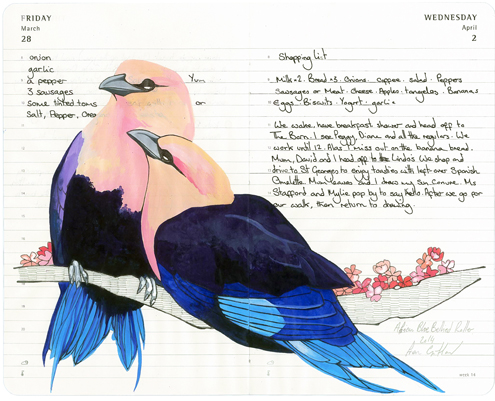 FRIDAY
March
28
onion
garlic
a pepper
3 sausages
some tinned toms
Salt, Pepper, Oreg
Yum
or
WEDNESDAY
April
2
Shopping list
Milk x2 · Bread x3 · Onions · Coffee · salad · Peppers
Sausages or Meat · Cheese · Apples · tangelos · Bananas
Eggs · Biscuits · Yogurt · garlic
We wake, have breakfast shower and head off to
The Barn. I see Peggy, Diane and all the regulars. We
work until 12. Alas I miss out on the banana bread.
Mum, David and I head off to the Lindo's. We shop and
drive to St Georges to enjoy toasties with left over Spanish
Omelette. Mum leaves and I draw my Sun Conure. Ms
Stafford and Mylie pop by to say hello. After we go for
our walk, then return to drawing.
Blue Bellied Roller
2014
WEEK 14